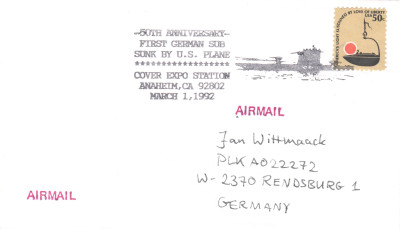 -50TH ANNIVERSARY-
FIRST GERMAN SUB
SUNK BY U.S. PLANE
********************
COVER EXPO STATION
ANAHEIM, CA 92802
MARCH 1, 1992
USA 50c
AIRMAIL
Jan Wittmaack
PLK A022272
W-2370 RENDSBURG 1
GERMANY
AIRMAIL